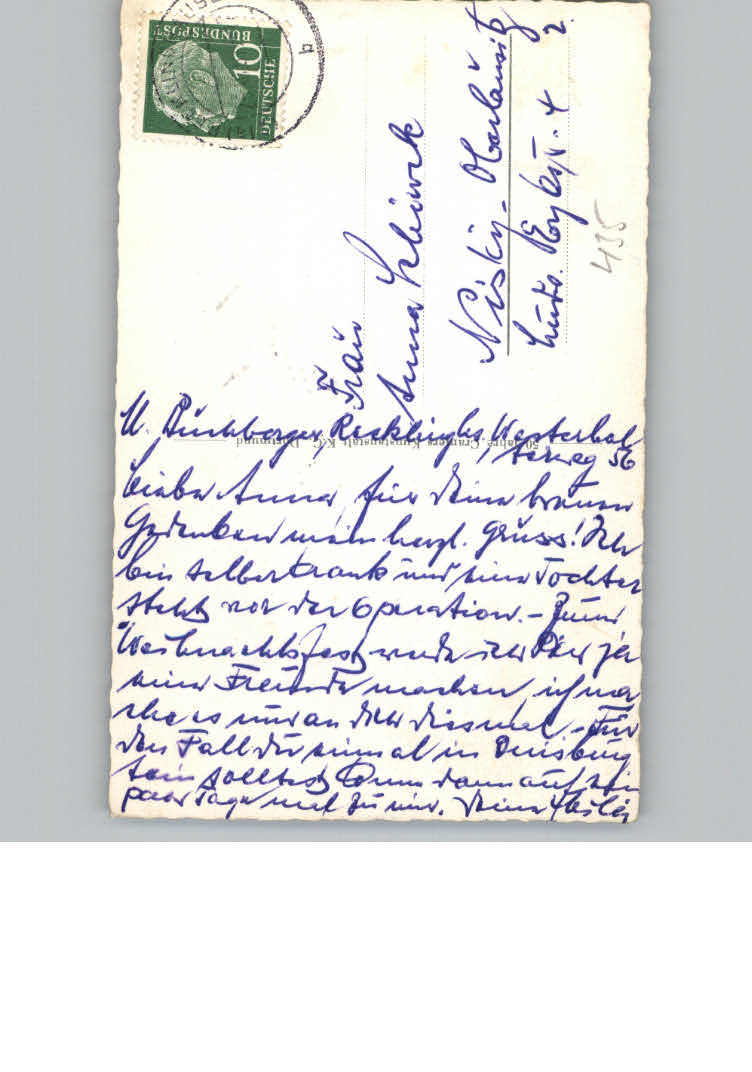 DEUTSCHE
BUNDESPOST
10
b
Frau
Anna
Nisky-Oberlausitz
2.
435
50 Jahre, Cramers Kunstanstalt K.G., Dortmund
Recklinghs, Westerhol
terweg 56
Liebe Anna, für Deine
Gedenken mein herzl. Gruss! Ich
bin selber krank und eine Tochter
steht vor der Operation. - Zum
Weihnachtsfest werde ich Dir ja
eine Freude machen, ich ma
che es nur an Dich diesmal. - Für
den Fall Du einmal in Duisburg
sein solltest komm dann auf ein
paar Tage mal zu mir. Deine